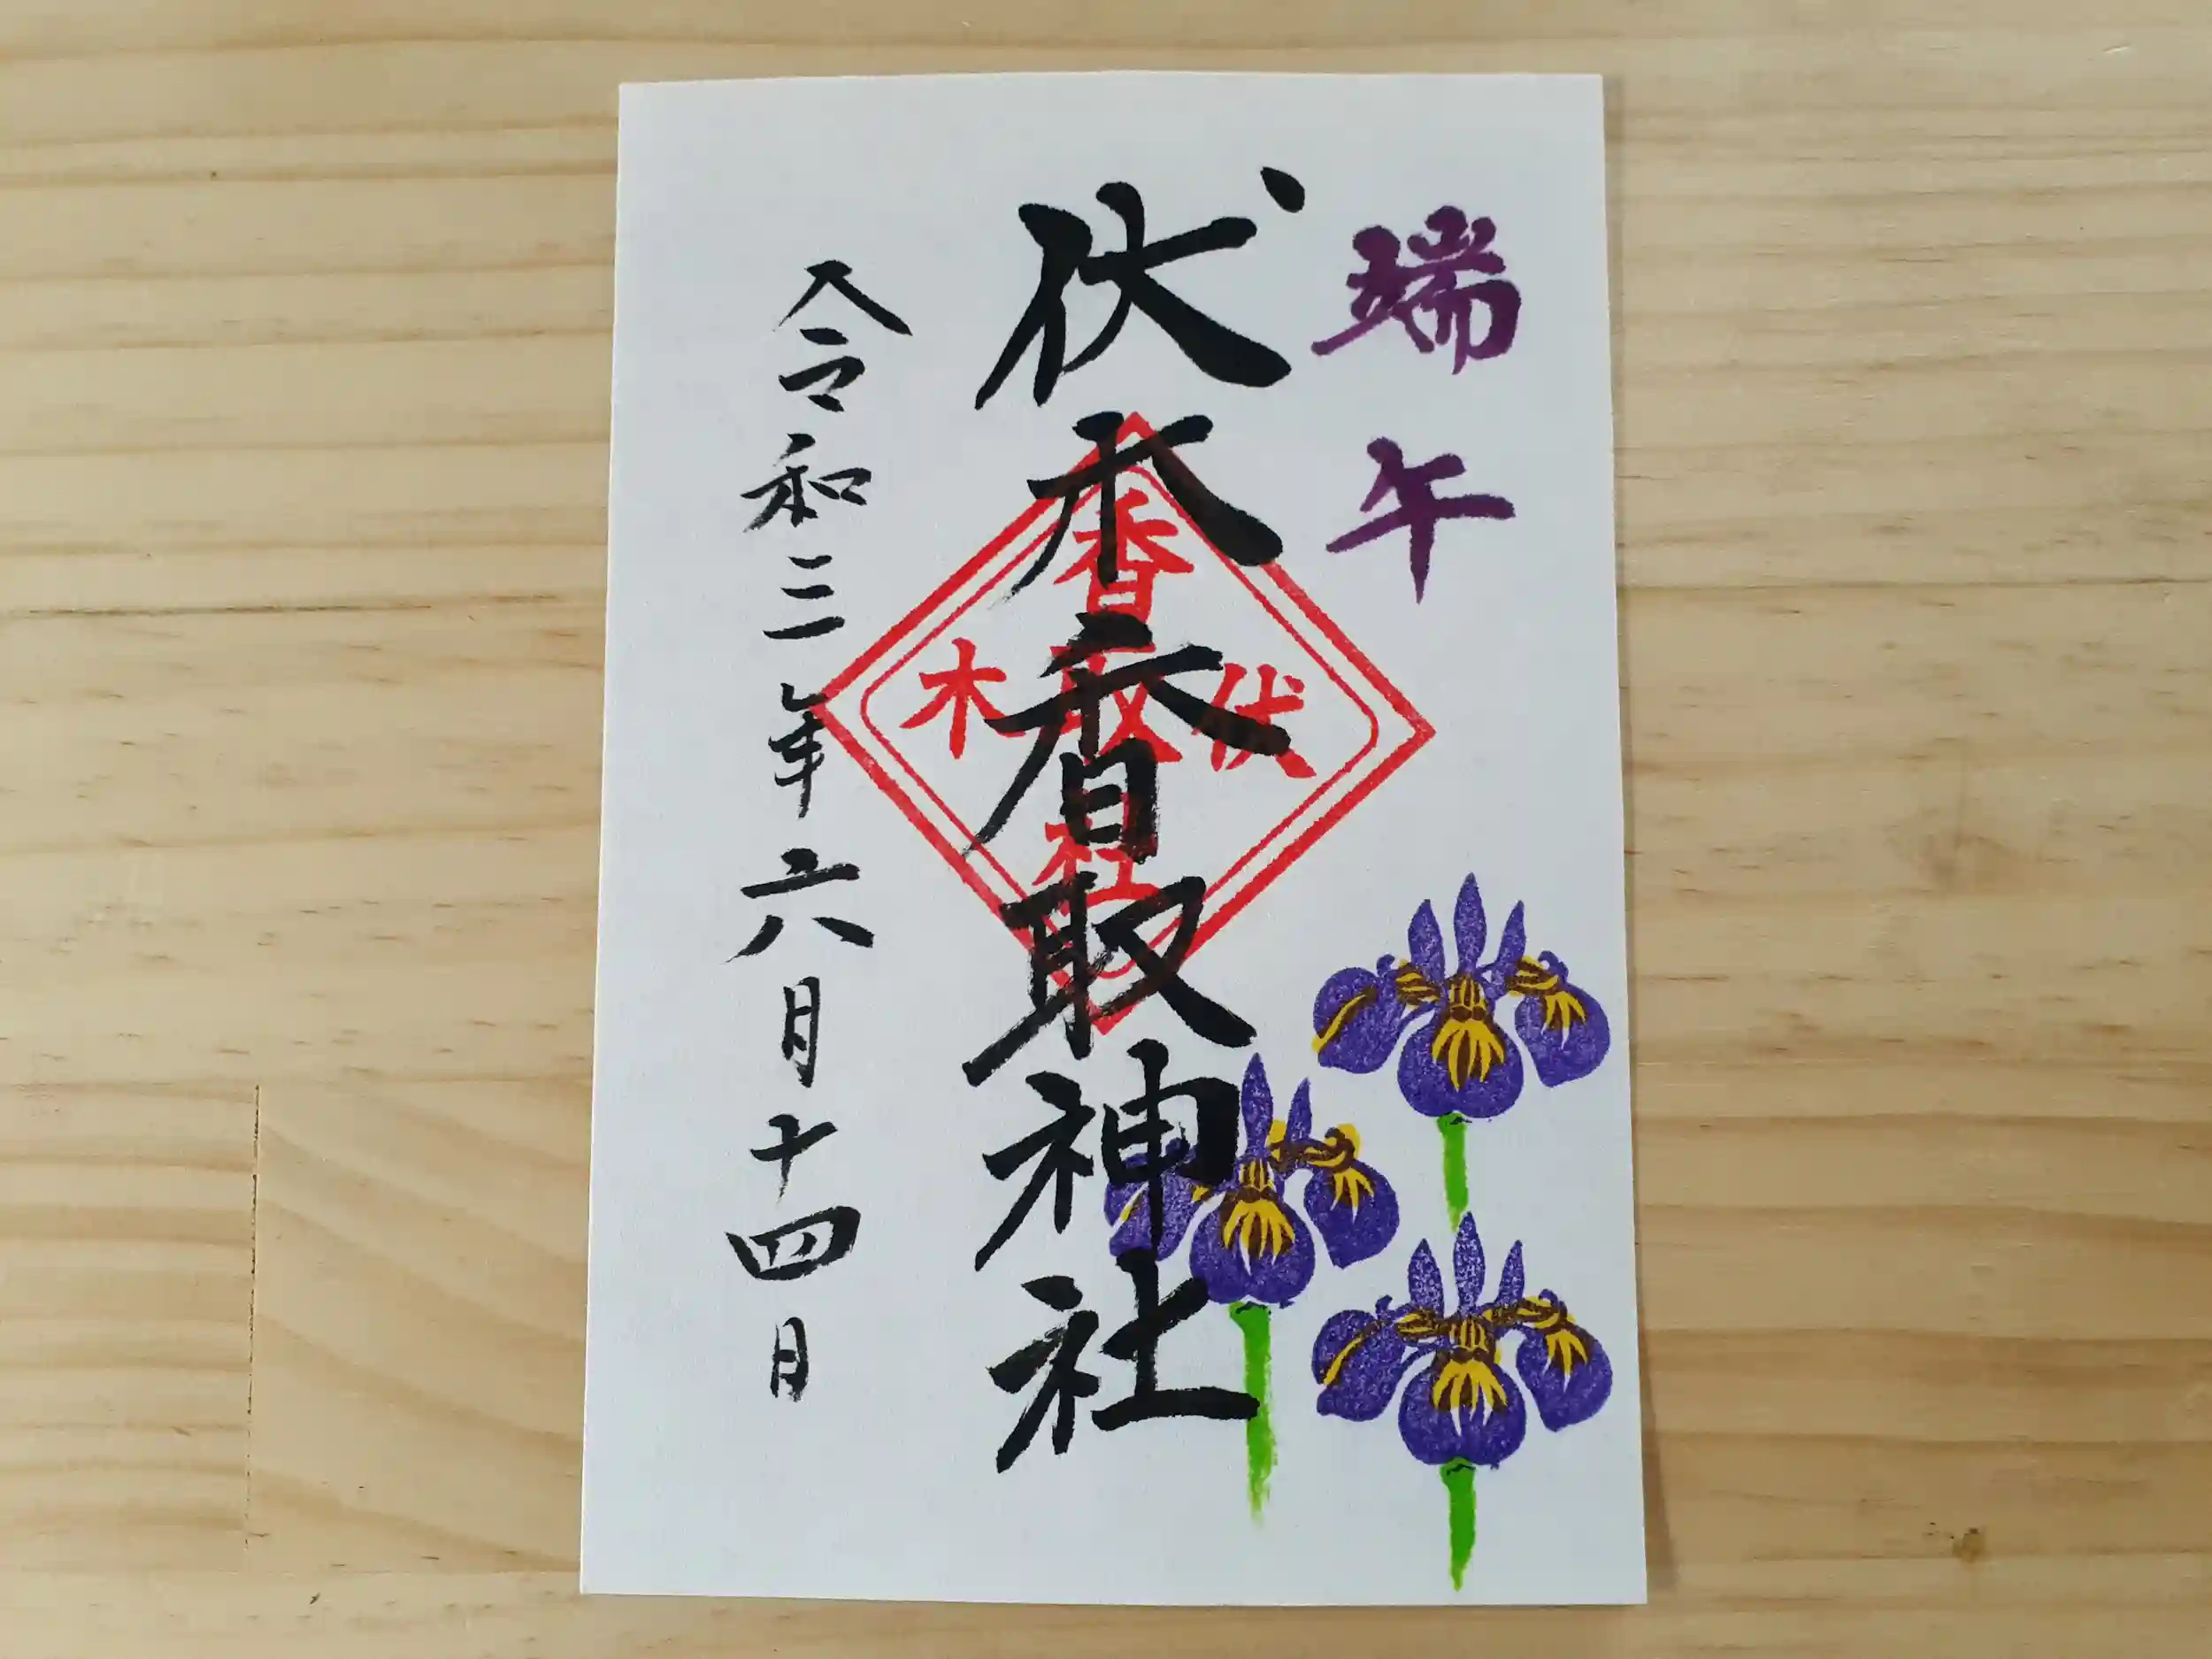 端午
伏木香取神社
香取社
伏木
令和三年六月十四日